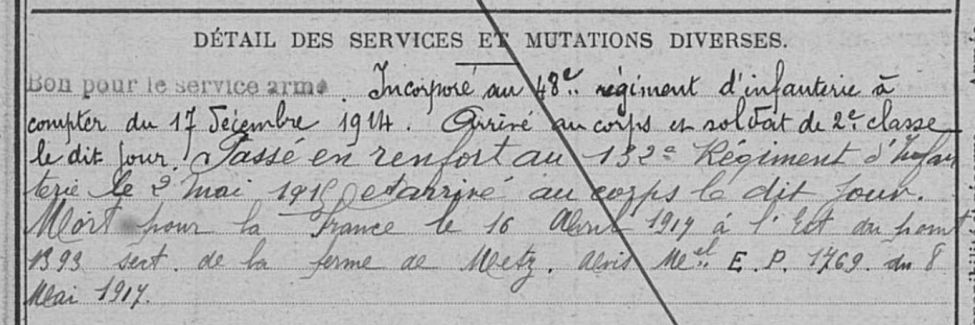 DÉTAIL DES SERVICES ET MUTATIONS DIVERSES.
Bon pour le service armé. Incorporé au 48e régiment d'infanterie à
compter du 17 Décembre 1914. Arrivé au corps et soldat de 2e classe
le dit jour. Passé en renfort au 132e Régiment d'Infan
terie le 2 Mai 1915 et arrivé au corps le dit jour.
Mort pour la France le 16 Avril 1917 à l'Est du point
1393 sect. de la ferme de Metz. Avis Mel E.P. 1769 du 8
Mai 1917.